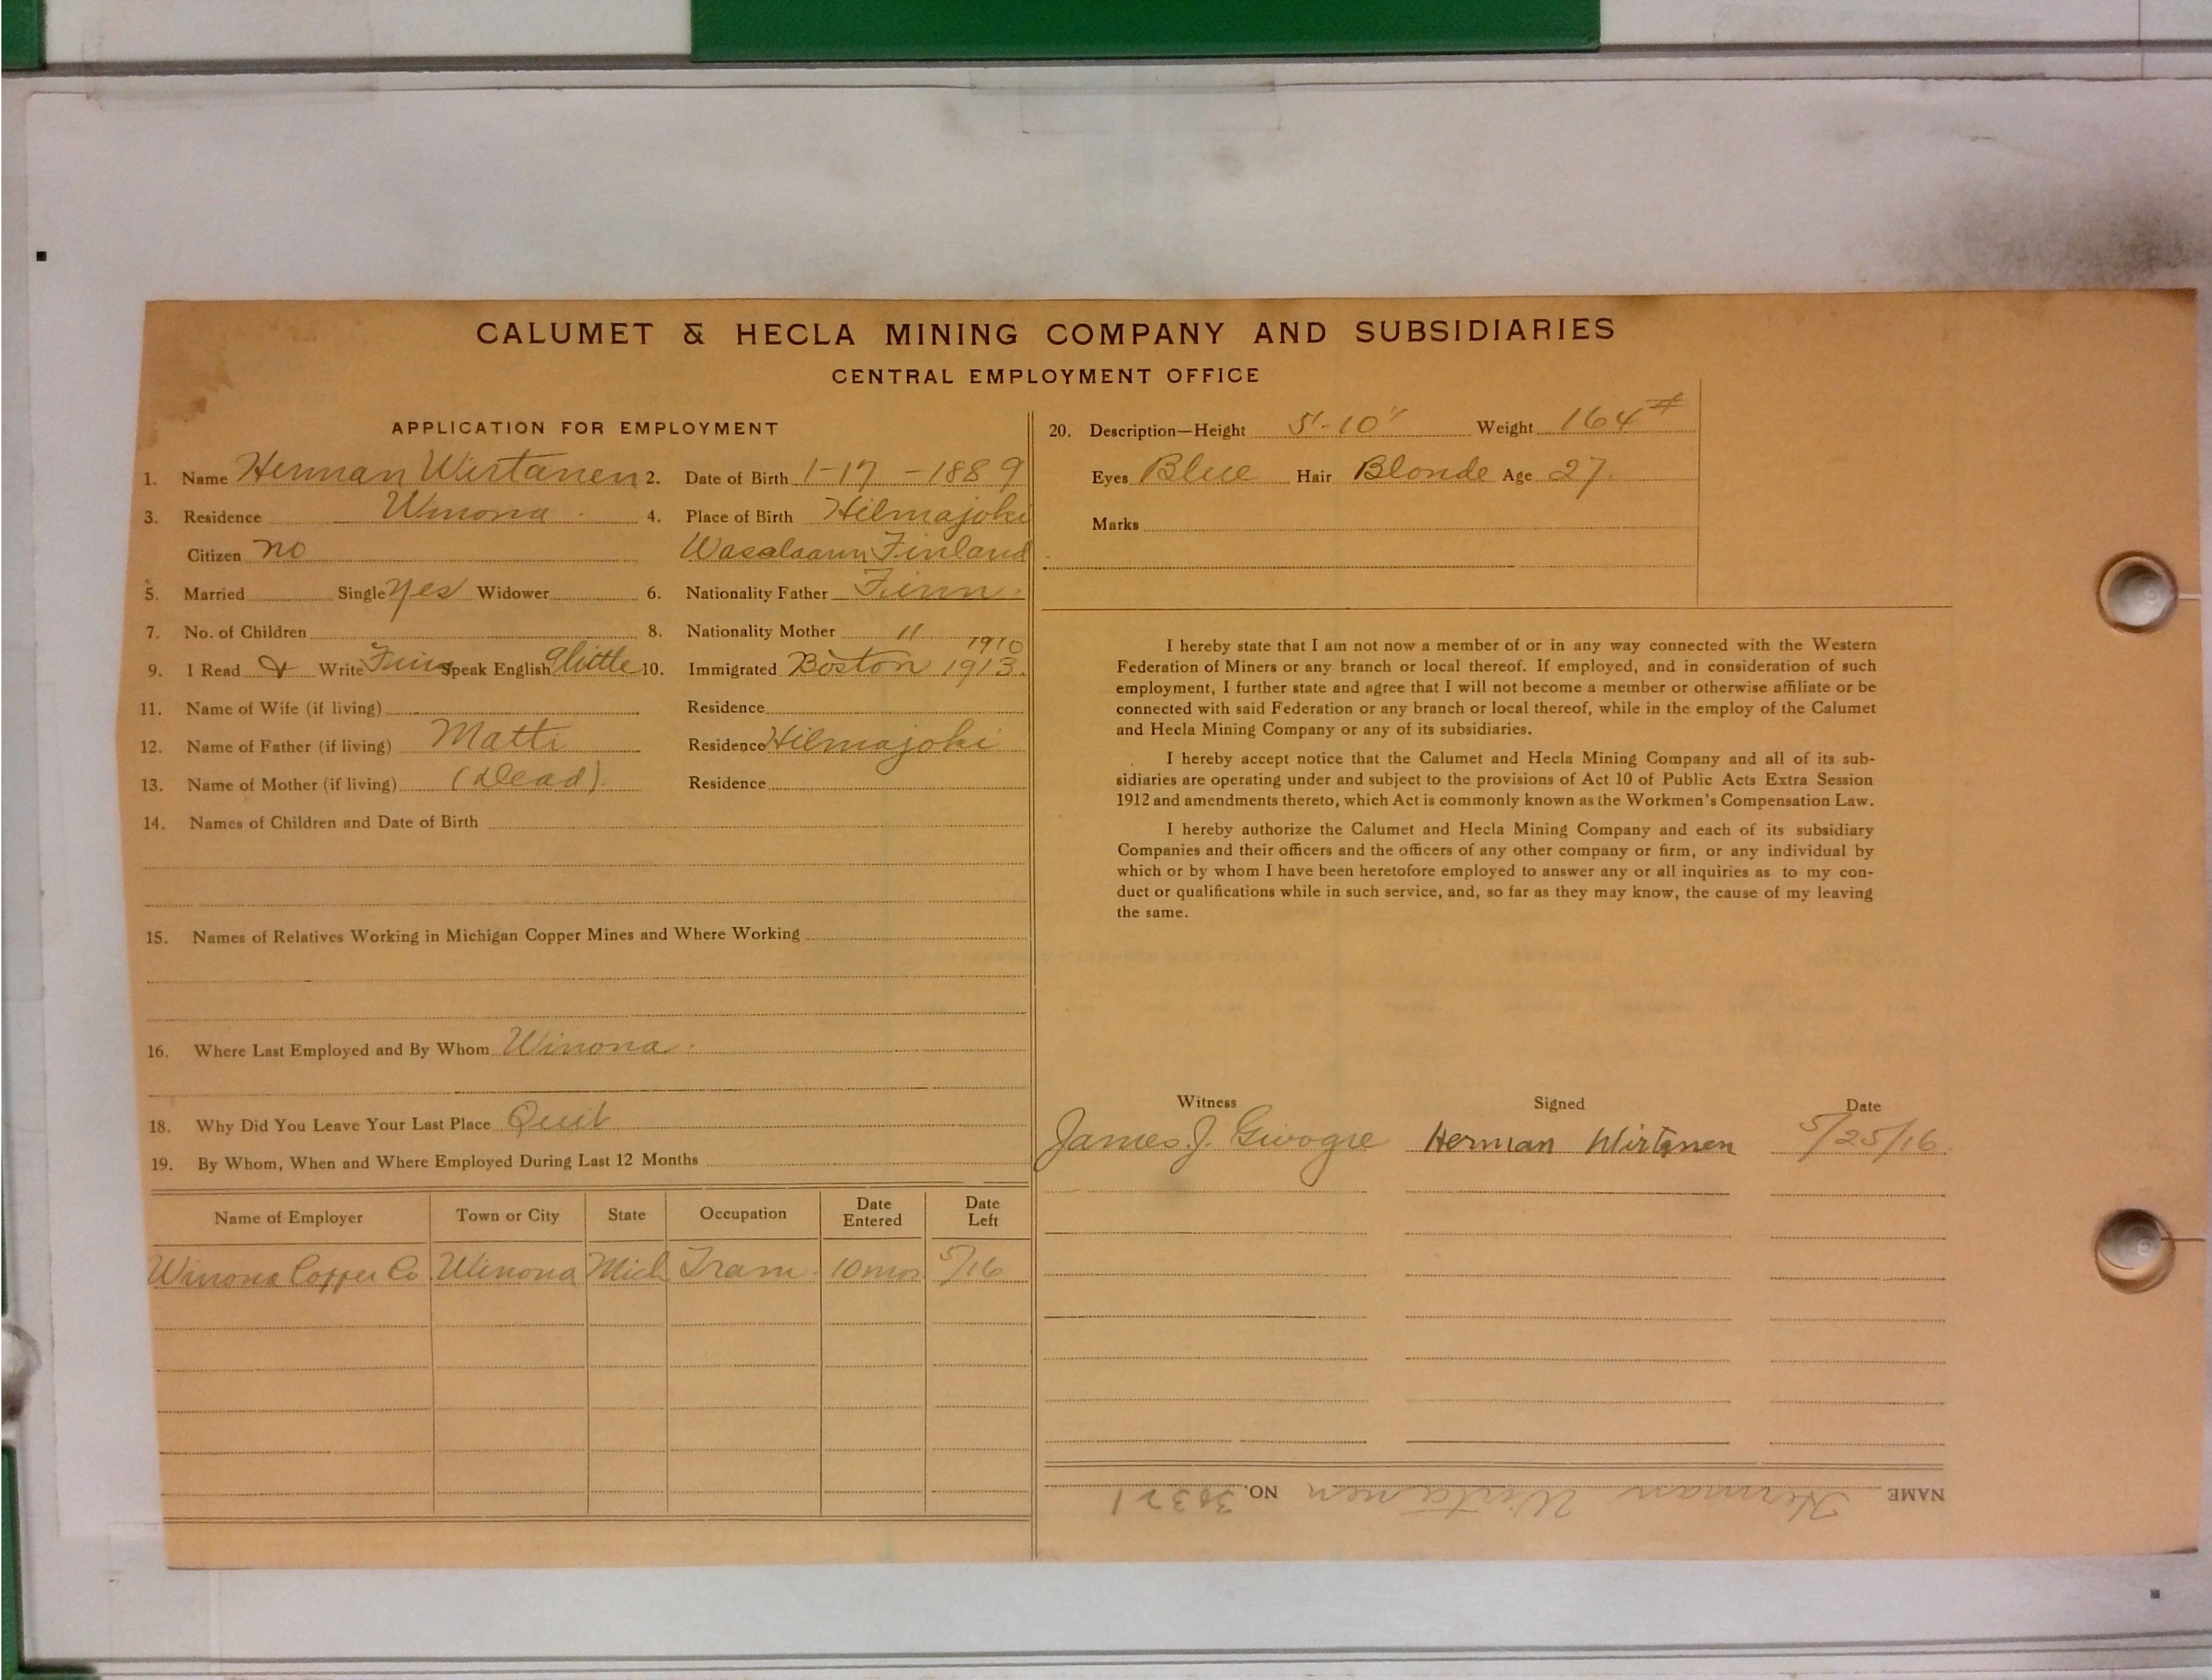 CALUMET & HECLA MINING COMPANY AND SUBSIDIARIES
CENTRAL EMPLOYMENT OFFICE
APPLICATION FOR EMPLOYMENT
1. Name Herman Wirtanen 2. Date of Birth 1-17-1889
3. Residence Winona 4. Place of Birth Hilmajoki
Citizen no Wasalaann Finland
5. Married Single yes Widower 6. Nationality Father Finn.
7. No. of Children 8. Nationality Mother "
1910
9. I Read & Write Finn Speak English little 10. Immigrated Boston 1913.
11. Name of Wife (if living) Residence
12. Name of Father (if living) Matti Residence Hilmajoki
13. Name of Mother (if living) (Dead). Residence
14. Names of Children and Date of Birth
15. Names of Relatives Working in Michigan Copper Mines and Where Working
16. Where Last Employed and By Whom Winona.
18. Why Did You Leave Your Last Place Quit
19. By Whom, When and Where Employed During Last 12 Months
Name of Employer Town or City State Occupation Date Entered Date Left
Winona Copper Co Winona Mich Tram. 10 mos. 5/16
20. Description—Height 5'-10" Weight 164#
Eyes Blue Hair Blonde Age 27.
Marks
I hereby state that I am not now a member of or in any way connected with the Western
Federation of Miners or any branch or local thereof. If employed, and in consideration of such
employment, I further state and agree that I will not become a member or otherwise affiliate or be
connected with said Federation or any branch or local thereof, while in the employ of the Calumet
and Hecla Mining Company or any of its subsidiaries.
I hereby accept notice that the Calumet and Hecla Mining Company and all of its sub-
sidiaries are operating under and subject to the provisions of Act 10 of Public Acts Extra Session
1912 and amendments thereto, which Act is commonly known as the Workmen's Compensation Law.
I hereby authorize the Calumet and Hecla Mining Company and each of its subsidiary
Companies and their officers and the officers of any other company or firm, or any individual by
which or by whom I have been heretofore employed to answer any or all inquiries as to my con-
duct or qualifications while in such service, and, so far as they may know, the cause of my leaving
the same.
Witness Signed Date
James J. Herman Wirtanen 5/25/16.
NAME Herman Wirtanen NO. 30321